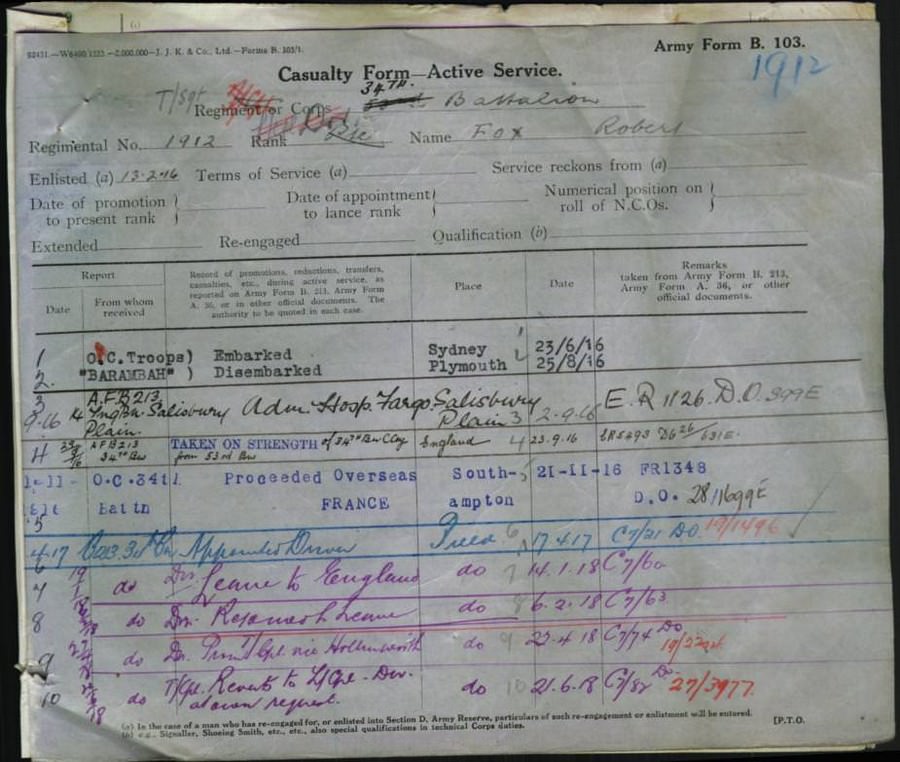 92431.—W6490/1325—2,000,000—J. J. K. & Co., Ltd.—Forms B. 103/1.
Army Form B. 103.
1912
Casualty Form—Active Service.
T/Sgt Regiment or Corps 34TH. Battalion
Regimental No. 1912 Rank Pte Name Fox Robert
Enlisted (a) 13-2-16 Terms of Service (a) Service reckons from (a)
Date of promotion to present rank } Date of appointment to lance rank } Numerical position on roll of N.C.Os. }
Extended Re-engaged Qualification (b)
Report
Date From whom received
Record of promotions, reductions, transfers, casualties, etc., during active service, as reported on Army Form B. 213, Army Form A. 36, or in other official documents. The authority to be quoted in each case.
Place
Date
Remarks taken from Army Form B. 213, Army Form A. 36, or other official documents.
1 O.C. Troops) Embarked Sydney 1 23/6/16
2. "BARAMBAH" ) Disembarked Plymouth 2 25/8/16
3 A.F.B213
9-16 14 Tng Bn Salisbury Plain Adm. Hosp. Fargo Salisbury Plain 3 2-9-16 E.R 1126. D.O. 399E
4 AFB213 34th Bn TAKEN ON STRENGTH of 34th Bn from 53rd Bn England 4 23.9.16 D626/631E.
O.C. 34th Battn Proceeded Overseas FRANCE South-ampton 5 21-11-16 FR1348 D.O. 28/1699E
5
4.17 Appointed Driver Field 6 17.4.17 C7/21 DO 19/1496
7 do Dvr. Leave to England do 7 14.1.18 C7/60
8 do Dvr. Rejoined fr Leave do 8 6.2.18 C7/63
9 do Dr. Cpl. vice Hollinsworth do 9 C7/74 DO
10 do T/Cpl. Reverts to L/Cpl. Dvr. at own request. do 10 21.6.18 C7/82 DO 27/3977
(a) In the case of a man who has re-engaged for, or enlisted into Section D, Army Reserve, particulars of such re-engagement or enlistment will be entered.
(b) e.g., Signaller, Shoeing Smith, etc., etc., also special qualifications in technical Corps duties.
[P.T.O.